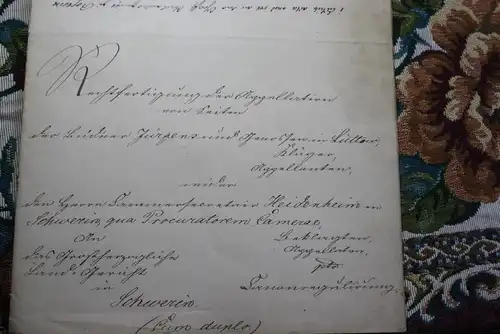 Rechtfertigung der Appellation
von Seiten
der Büdner Jürgens und Genossen in Lüttow,
Kläger,
Appellanten,
wider
den Herrn Cammersecretair Heidenheim in
Schwerin, qua Procuratorem Camerae,
Beklagten,
Appellaten,
An
das Großherzogliche
Land Gericht
in
Schwerin.
pto.
Canonregulirung.
(Cum duplo)